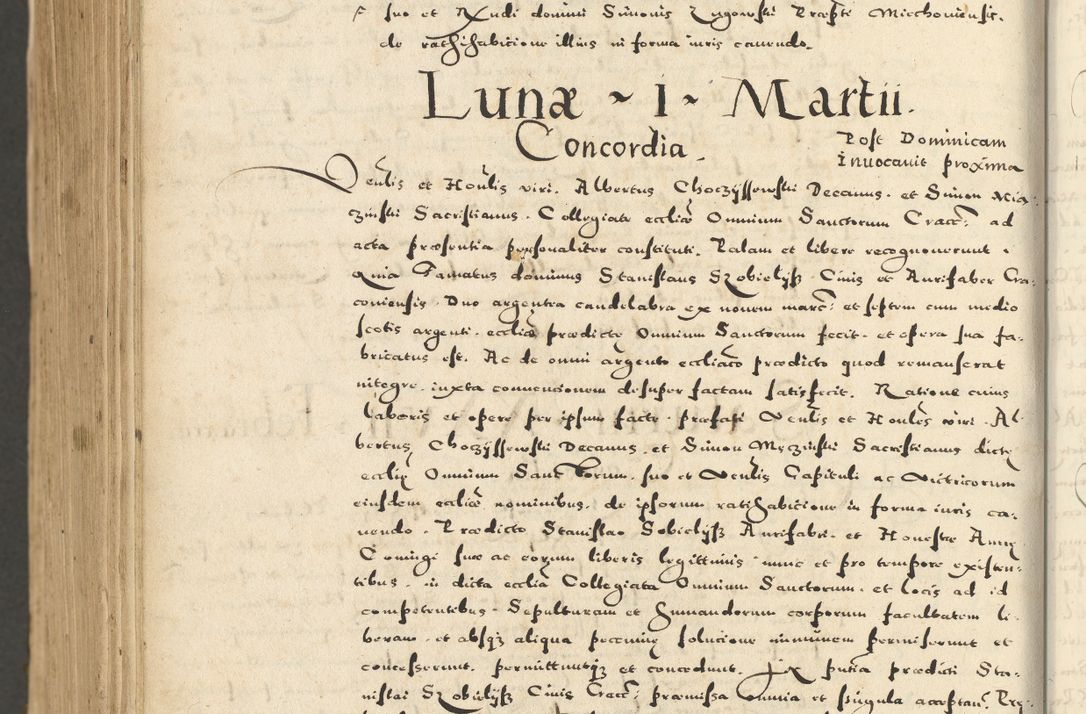 suo et Rndi domini Simonis Lugowski Præpti Miechoviensis.
de rathihabitione illius in forma iuris cavendo.
Lunæ ~ 1 ~ Martii.
Concordia.
Post Dominicam
Invocavit proxima
Venlis et Honlis viri. Albertus Choczyssewski Decanus. et Simon Mię-
cziński Sacristianus. Collegiatæ eccliæ Omnium Sanctorum Cracc: ad
acta præsentia personaliter constituti. Palam et libere recognoverunt.
Quia Famatus dominus Stanislaus Szobielyß. Civis et Aurifaber Cra-
coviensis. Duo argentea candelabra ex novem marc: et septem cum medio
scotis argenti. eccliæ prædictę Omnium Sanctorum fecit. et opera sua fa-
bricatus est. Ac de omni argento eccliaco prædicto quod remanserat
integre. iuxta conventionem desuper factam satisfecit. Ratione cuius
laboris et operę per ipsum factę. præfati Venles et Honles viri. Al-
bertus Choczyssewski Decanus. et Simon Męcziński Sacristianus dictę
ecclię Omnium Sanctorum. suo et Venlis Capituli ac Victricorum
eiusdem eccliæ nominibus. de ipsorum ratihabitione in forma iuris ca-
vendo. Prædicto Stanislao Sobielyß Aurifabro. et Honestæ Annę
Coniugi suæ ac eorum liberis legittimis nunc et pro tempore existen-
tibus. in dicta ecclia Collegiata Omnium Sanctorum. et locis ad id
competentibus. Sepulturam et humandorum corporum facultatem li-
beram. et absqz aliqua pecunię solucione inimunem permiserunt et
concesserunt. permittuntqz et concedunt. In putia prædicti Sta-
nislai Szobielyß Civis Cracc: præmissa omnia et singula acceptan.